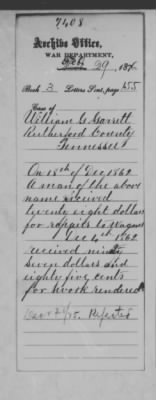 7408
Archive Office,
WAR DEPARTMENT,
Feb. 29, 1876
Book 3 Letters Sent, page 655
Case of
William G. Garrett
Rutherford County
Tennessee
On 18th of Dec 1862
A man of the above
name received
twenty eight dollars
for repairs to wagons
Dec 4th 1862
received ninety
seven dollars and
eighty five cents
for work rendered